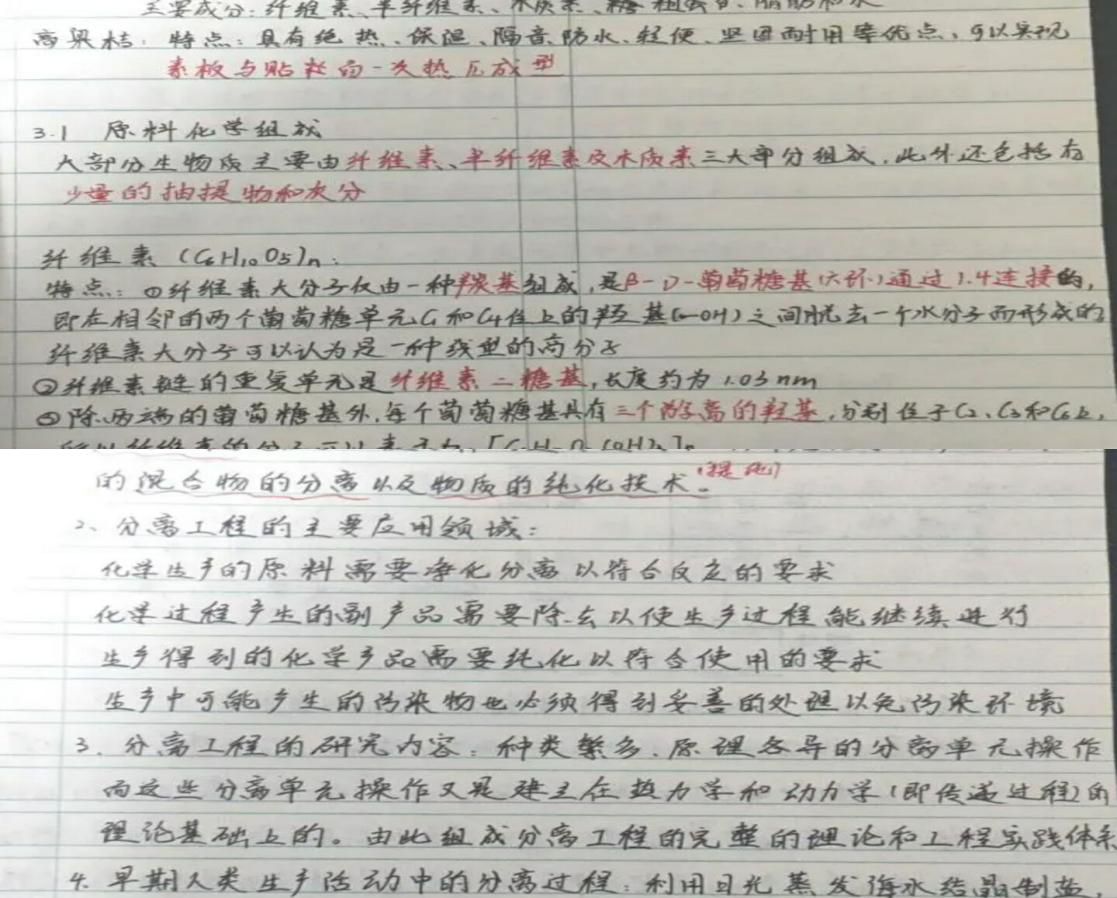 主要成分：纤维素、半纤维素、木质素、粗蛋白、脂肪和水
高粱秸：特点：具有绝热、保温、隔音、防水、轻便、坚固而耐用等优点，可以实现
素板与贴粘的一次热压成型
3.1 原料化学组成
大部分生物质主要由纤维素、半纤维素及木质素三大部分组成，此外还包括有
少量的抽提物和灰分
纤维素 (C6H10O5)n：
特点：①纤维素大分子仅由一种羰基组成，是β-D-葡萄糖基(六环)通过1.4连接的，
即在相邻的两个葡萄糖单元C1和C4位上的羟基(-OH)之间脱去一个水分子而形成的
纤维素大分子可以认为是一种线型的高分子
②纤维素链的重复单元是纤维素二糖基，长度约为1.03nm
③除两端的葡萄糖基外，每个葡萄糖基具有三个游离的羟基，分别位于C2、C3和C6上，
所以纤维素的分子可以表示为
的混合物的分离以及物质的纯化技术。(提纯)
2、分离工程的主要应用领域：
化学生产的原料需要净化分离以符合反应的要求
化学过程产生的副产品需要除去以使生产过程能继续进行
生产得到的化学产品需要纯化以符合使用的要求
生产中可能产生的污染物也必须得到妥善的处理以免污染环境
3、分离工程的研究内容：种类繁多、原理各异的分离单元操作
而这些分离单元操作又是建立在热力学和动力学(即传递过程)的
理论基础上的。由此组成分离工程的完整的理论和工程实践体系
4、早期人类生产活动中的分离过程：利用日光蒸发海水结晶制盐，